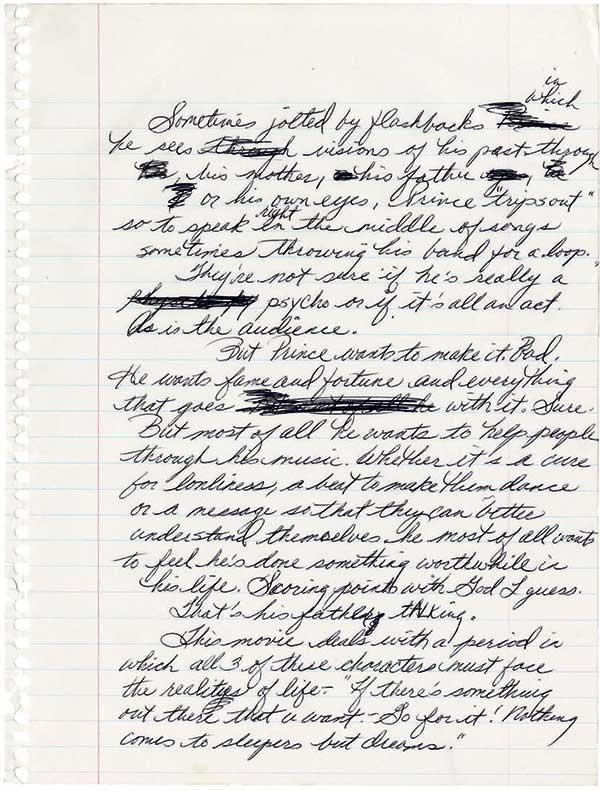 in
which
Sometimes jolted by flashbacks
he sees visions of his past through
his mother, his father
or his own eyes, Prince "trips out"
right
so to speak in the middle of songs
sometimes throwing his band for a loop.
They're not sure if he's really a
psycho or if it's all an act.
As is the audience.
But Prince wants to make it. Bad.
He wants fame and fortune and everything
that goes with it. Sure.
But most of all he wants to help people
through his music. Whether it's a cure
for lonliness, a beat to make them dance
or a message so that they can better
understand themselves he most of all wants
to feel he's done something worthwhile in
his life. Scoring points with God I guess.
That's his father talking.
This movie deals with a period in
which all 3 of these characters must face
the realities of life - "If there's something
out there that u want - Go for it! Nothing
comes to sleepers but dreams."